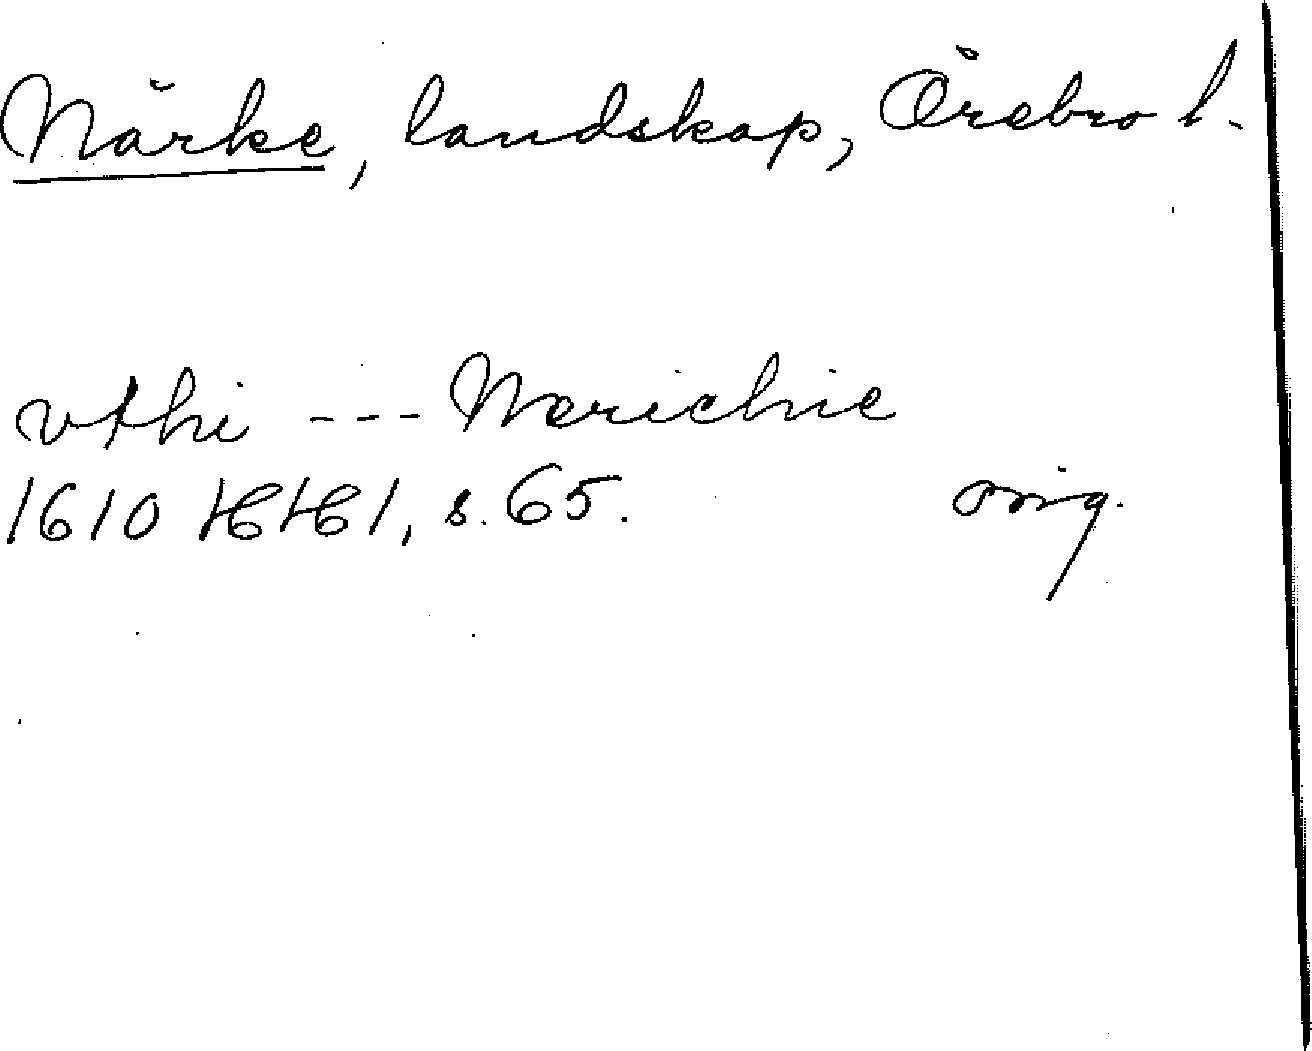 Närke, landskap, Örebro l.
vthi --- Nerichie
1610 HH 1, s. 65. orig.